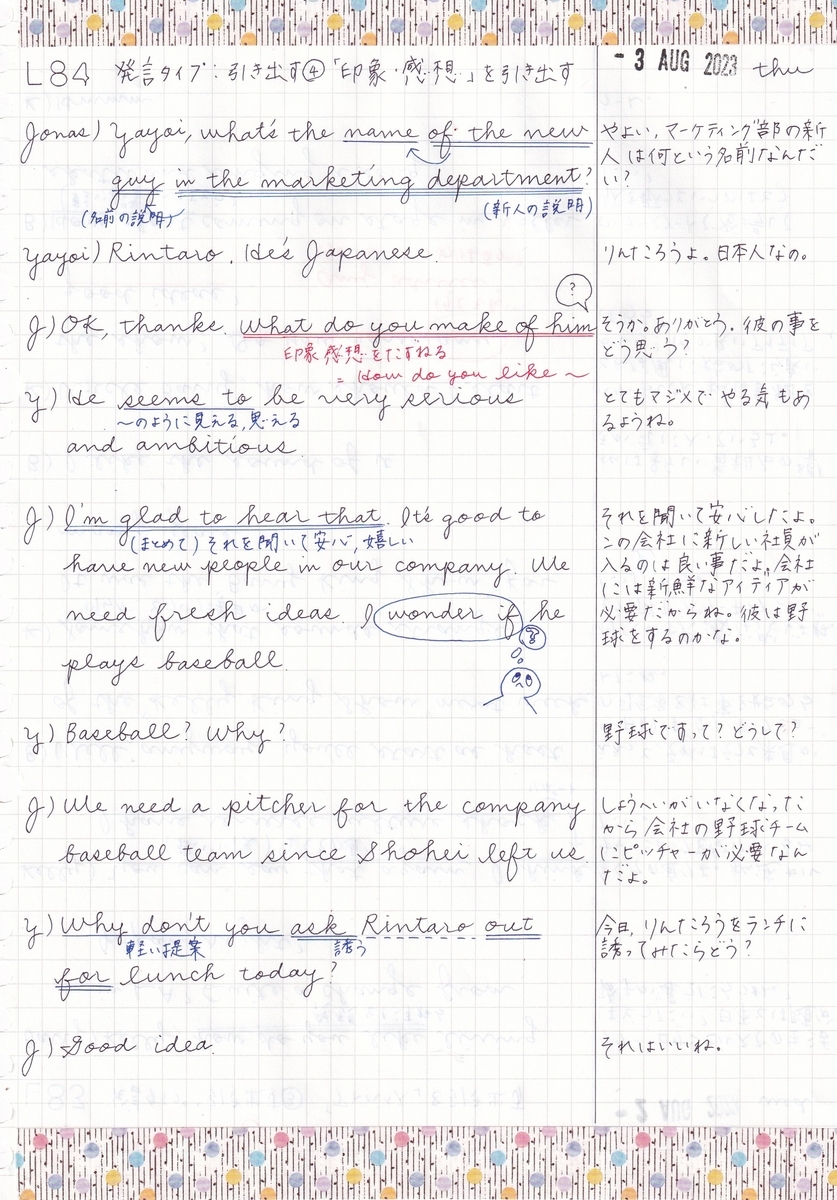 L84 発言タイプ:引き出す④「印象・感想」を引き出す
- 3 AUG 2023 thu
Jonas) Yayoi, what's the name of the new
guy in the marketing department?
(名前の説明)
(新人の説明)
やよい,マーケティング部の新
人は何という名前なんだ
い?
Yayoi) Rintaro. He's Japanese.
りんたろうよ。日本人なの。
?
J) OK, thanks. What do you make of him
印象感想をたずねる
= How do you like ~
そうか。ありがとう。彼の事を
どう思う?
Y) He seems to be very serious
~のように見える,思える
and ambitious.
とてもマジメで やる気もあ
るようね。
J) I'm glad to hear that. It's good to
(まとめて) それを聞いて安心,嬉しい
have new people in our company. We
need fresh ideas. I wonder if he
?
plays baseball.
それを聞いて安心したよ。
この会社に新しい社員が
入るのは良い事だよ。会社
には新鮮なアイディアが
必要だからね。彼は野
球をするのかな。
Y) Baseball? Why?
野球ですって?どうして?
J) We need a pitcher for the company
baseball team since Shohei left us.
しょうへいがいなくなった
から 会社の野球チーム
にピッチャーが必要なん
だよ。
Y) Why don't you ask Rintaro out
軽い提案
誘う
for lunch today?
今日,りんたろうをランチに
誘ってみたらどう?
J) Good idea.
それはいいね。